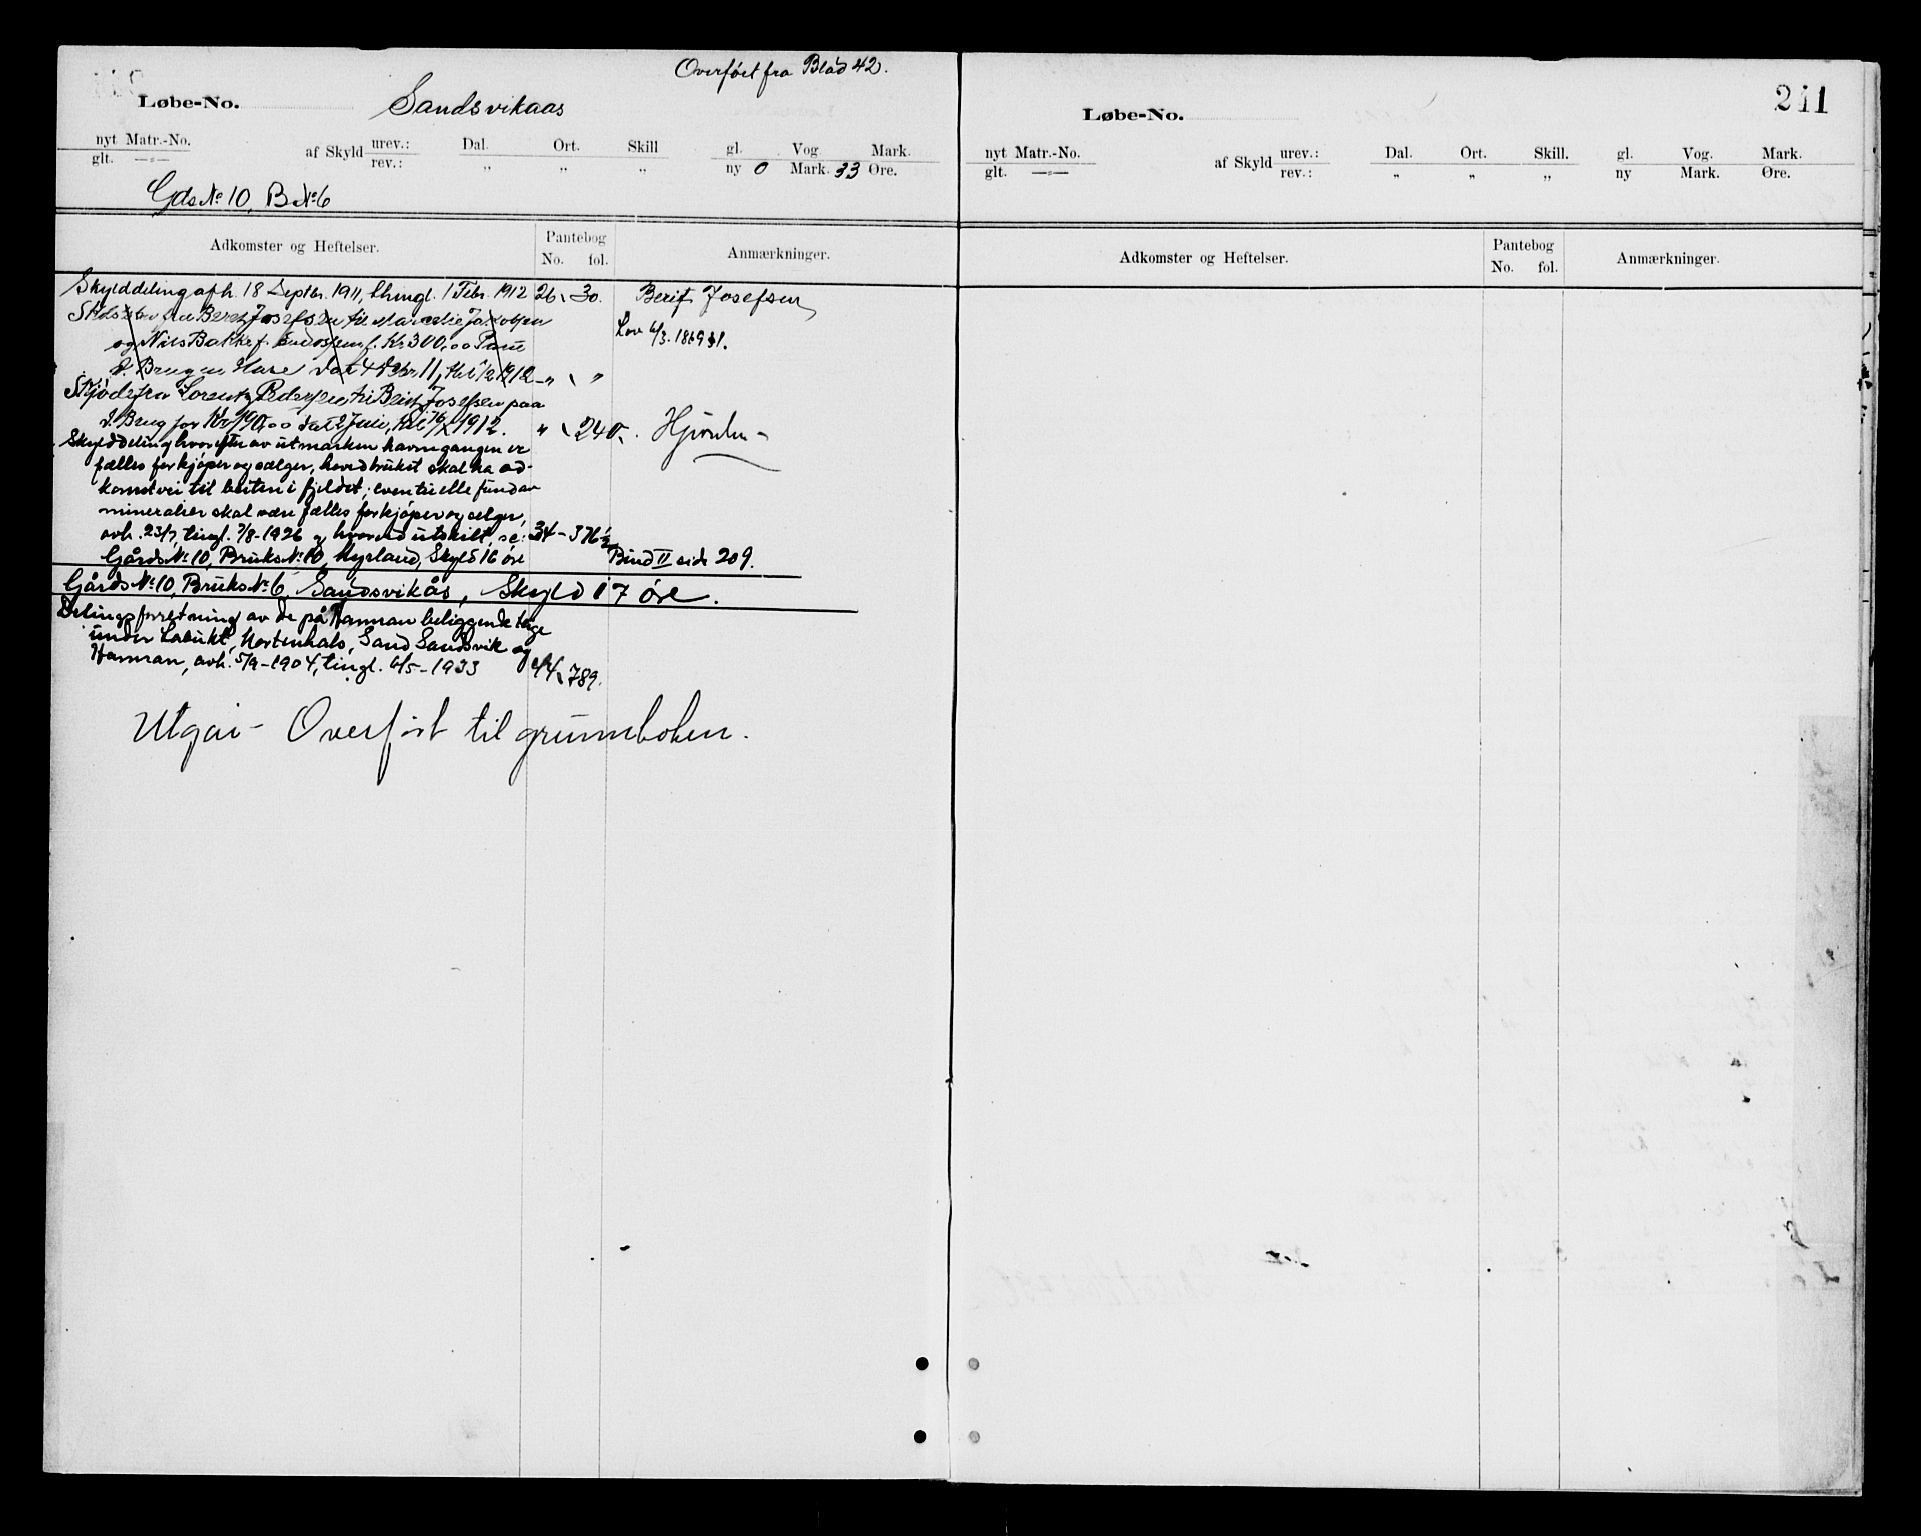 Overført fra Blad 42.
Løbe-No. Sandsvikaas
nyt Matr.-No. af Skyld urev.: Dal. Ort. Skill gl. Vog. Mark.
glt. —"— rev.: " " " ny 0 Mark. 33 Øre.
Gds No 10, B. No 6
Adkomster og Heftelser. Pantebog No. fol. Anmærkninger.
Skylddeling afh. 18 Septbr. 1911, thingl. 1 Febr. 1912 26 30. Berit Josefsen
fra Beret Josefsen til Jakobsen Lov 6/3. 1869 § 1.
og Nils Bakkej f. Kr 300,00 Pant
i Brug 4 11, 1/2 1912 - " "
Skjøde fra Lorentz Pedersen til Berit Josefsen paa
d. Brug for Kr 190,00 dat 2 Juli, 1912. " 240.
Skylddeling hvorefter av utmarken havnegangen er
fælles for kjøper og sælger, hovedbruket skal ha ad-
komstvei til beiten i fjeldet; eventuelle fund av
mineralier skal være fælles for kjøper og selger,
avh. 23/7, tingl. 7/8-1926 og hvorved utskilt, se: 34 - 376 1/2
Gårds No 10, Bruks No 10, Myrland, Skyld 16 øre Bind II side 209.
Gårds No 10, Bruks No 6, Sandsvikås, Skyld 17 øre.
Delingsforretning av de på beliggende teige
under Labukt, Mortenhals, Sand Sandsvik og
avh. 5/9-1904, tingl. 6/5-1933 44 789.
Utgår - Overført til grunnboken.
211
Løbe-No.
nyt Matr.-No. af Skyld urev.: Dal. Ort. Skill. gl. Vog. Mark.
glt. —"— rev.: " " " ny Mark. Øre.
Adkomster og Heftelser. Pantebog No. fol. Anmærkninger.